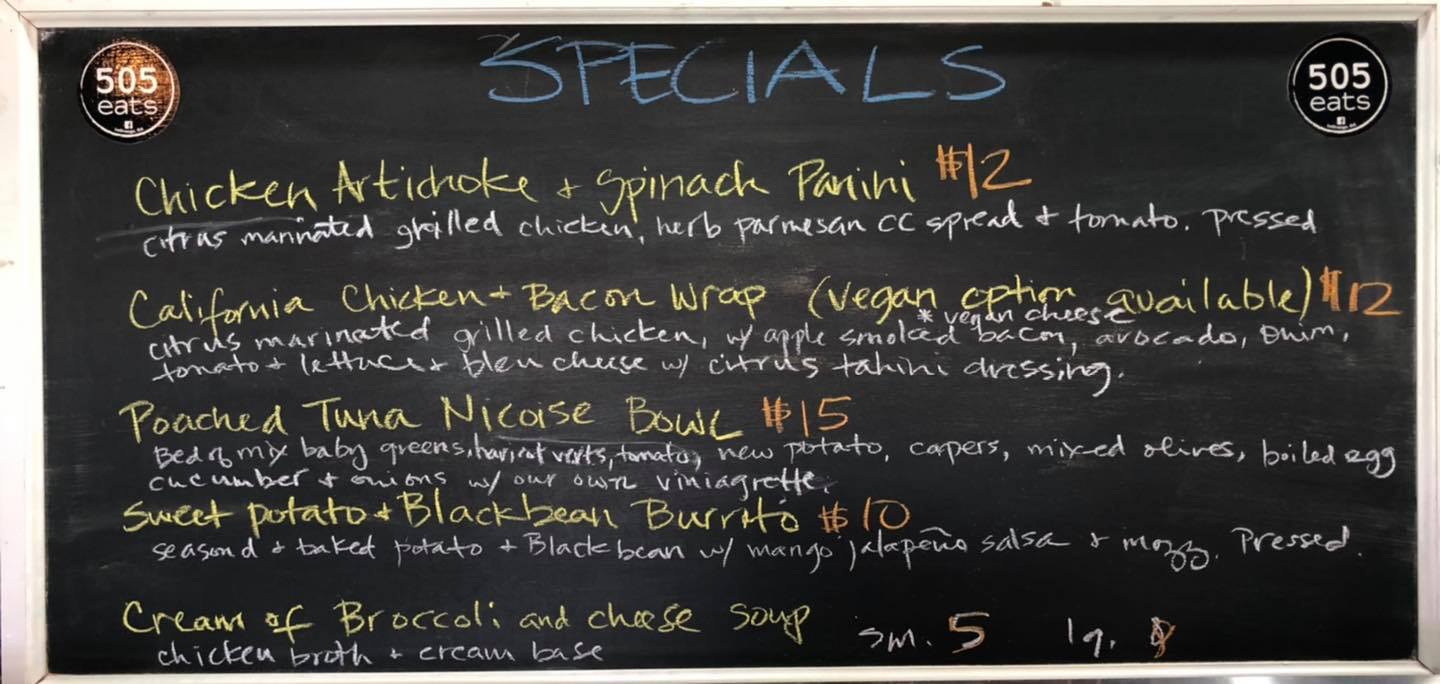 505 eats
SPECIALS
505 eats
Chicken Artichoke + Spinach Panini $12
citrus marinated grilled chicken, herb parmesan cc spread + tomato. pressed
California Chicken + Bacon Wrap (vegan option available) $12
* vegan cheese
citrus marinated grilled chicken, w/ apple smoked bacon, avocado, onion,
tomato + lettuce + bleu cheese w/ citrus tahini dressing.
Poached Tuna Nicoise Bowl $15
Bed of mix baby greens, haricot verts, tomato, new potato, capers, mixed olives, boiled egg
cucumber + onions w/ our own viniagrette.
Sweet potato + Blackbean Burrito $10
seasond + baked potato + Black bean w/ mango jalapeño salsa + mozz. Pressed.
Cream of Broccoli and cheese soup sm. 5 lg. 8
chicken broth + cream base